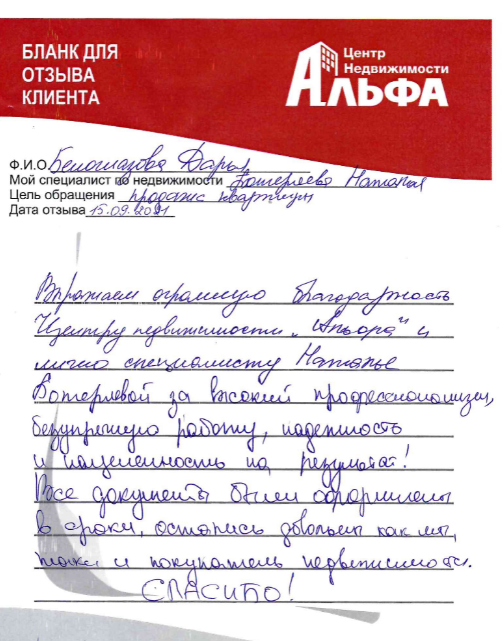 БЛАНК ДЛЯ
ОТЗЫВА
КЛИЕНТА
Центр
Недвижимости
АЛЬФА
Ф.И.О. Белоглазова Дарья
Мой специалист по недвижимости Наталья
Цель обращения продажа квартиры
Дата отзыва 15.09.2021
Выражаем огромную благодарность
Центру недвижимости „Альфа" и
лично специалисту Наталье
за высокий профессионализм,
безупречную работу, надежность
и нацеленность на результат!
Все документы были оформлены
в сроки, остались довольны как мы,
так и покупатель недвижимости.
СПАСИБО!